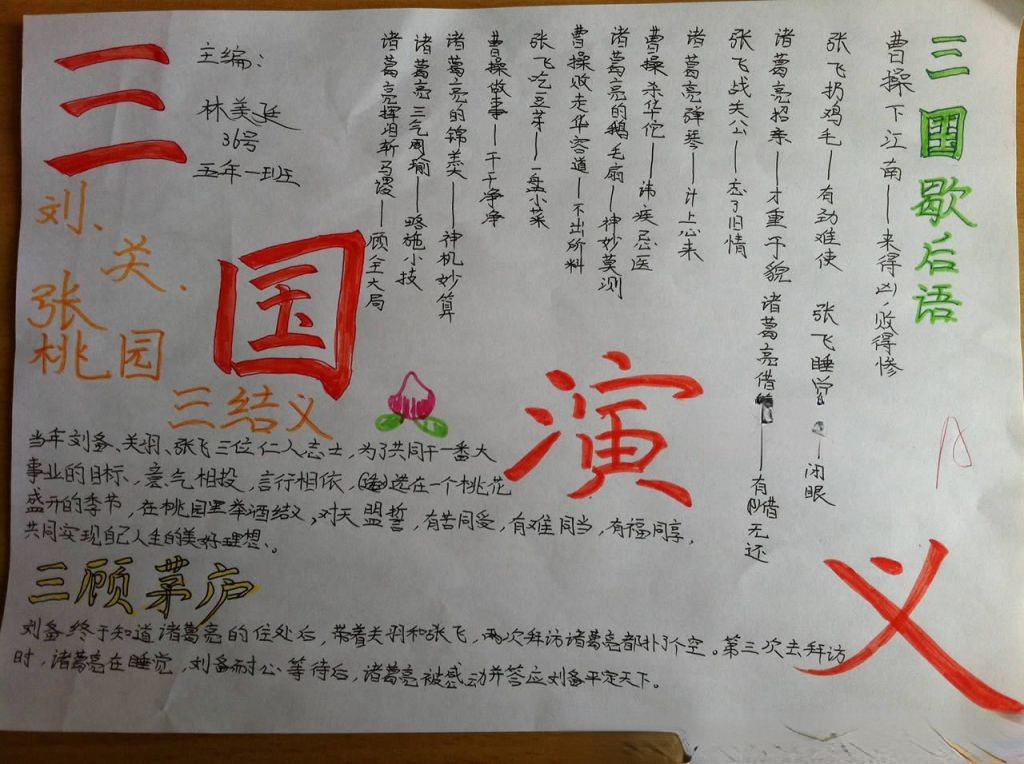 三国演义
主编：
林美廷
36号
五年一班
三国歇后语
曹操下江南——来得凶，败得惨
张飞扔鸡毛——有劲难使
张飞睡觉——闭眼
诸葛亮招亲——才重于貌
诸葛亮借——有借无还
张飞战关公——忘了旧情
诸葛亮弹琴——计上心来
曹操杀华佗——讳疾忌医
诸葛亮的鹅毛扇——神妙莫测
曹操败走华容道——不出所料
张飞吃豆芽——一盘小菜
曹操做事——干干净净
诸葛亮的锦囊——神机妙算
诸葛亮三气周瑜——略施小技
诸葛亮挥泪斩马谡——顾全大局
刘、
关、
张
桃园
三结义
当年刘备、关羽、张飞三位仁人志士，为了共同干一番大
事业的目标，意气相投，言行相依，选在一个桃花
盛开的季节，在桃园里举酒结义，对天盟誓，有苦同受，有难同当，有福同享，
共同实现自己人生的美好理想。
三顾茅庐
刘备终于知道诸葛亮的住处后，带着关羽和张飞，两次拜访诸葛亮都扑了个空。第三次去拜访
时，诸葛亮在睡觉，刘备耐心等待后，诸葛亮被感动并答应刘备平定天下。